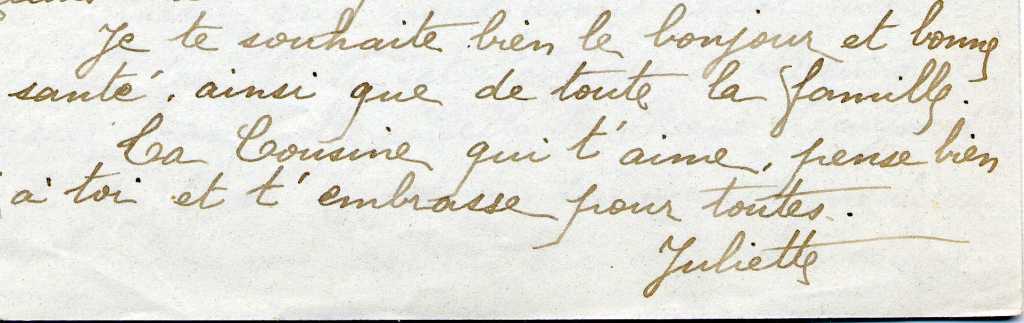 Je te souhaite bien le bonjour et bonne
santé, ainsi que de toute la famille.
Ta Cousine qui t'aime, pense bien
à toi et t'embrasse pour toutes.
Juliette